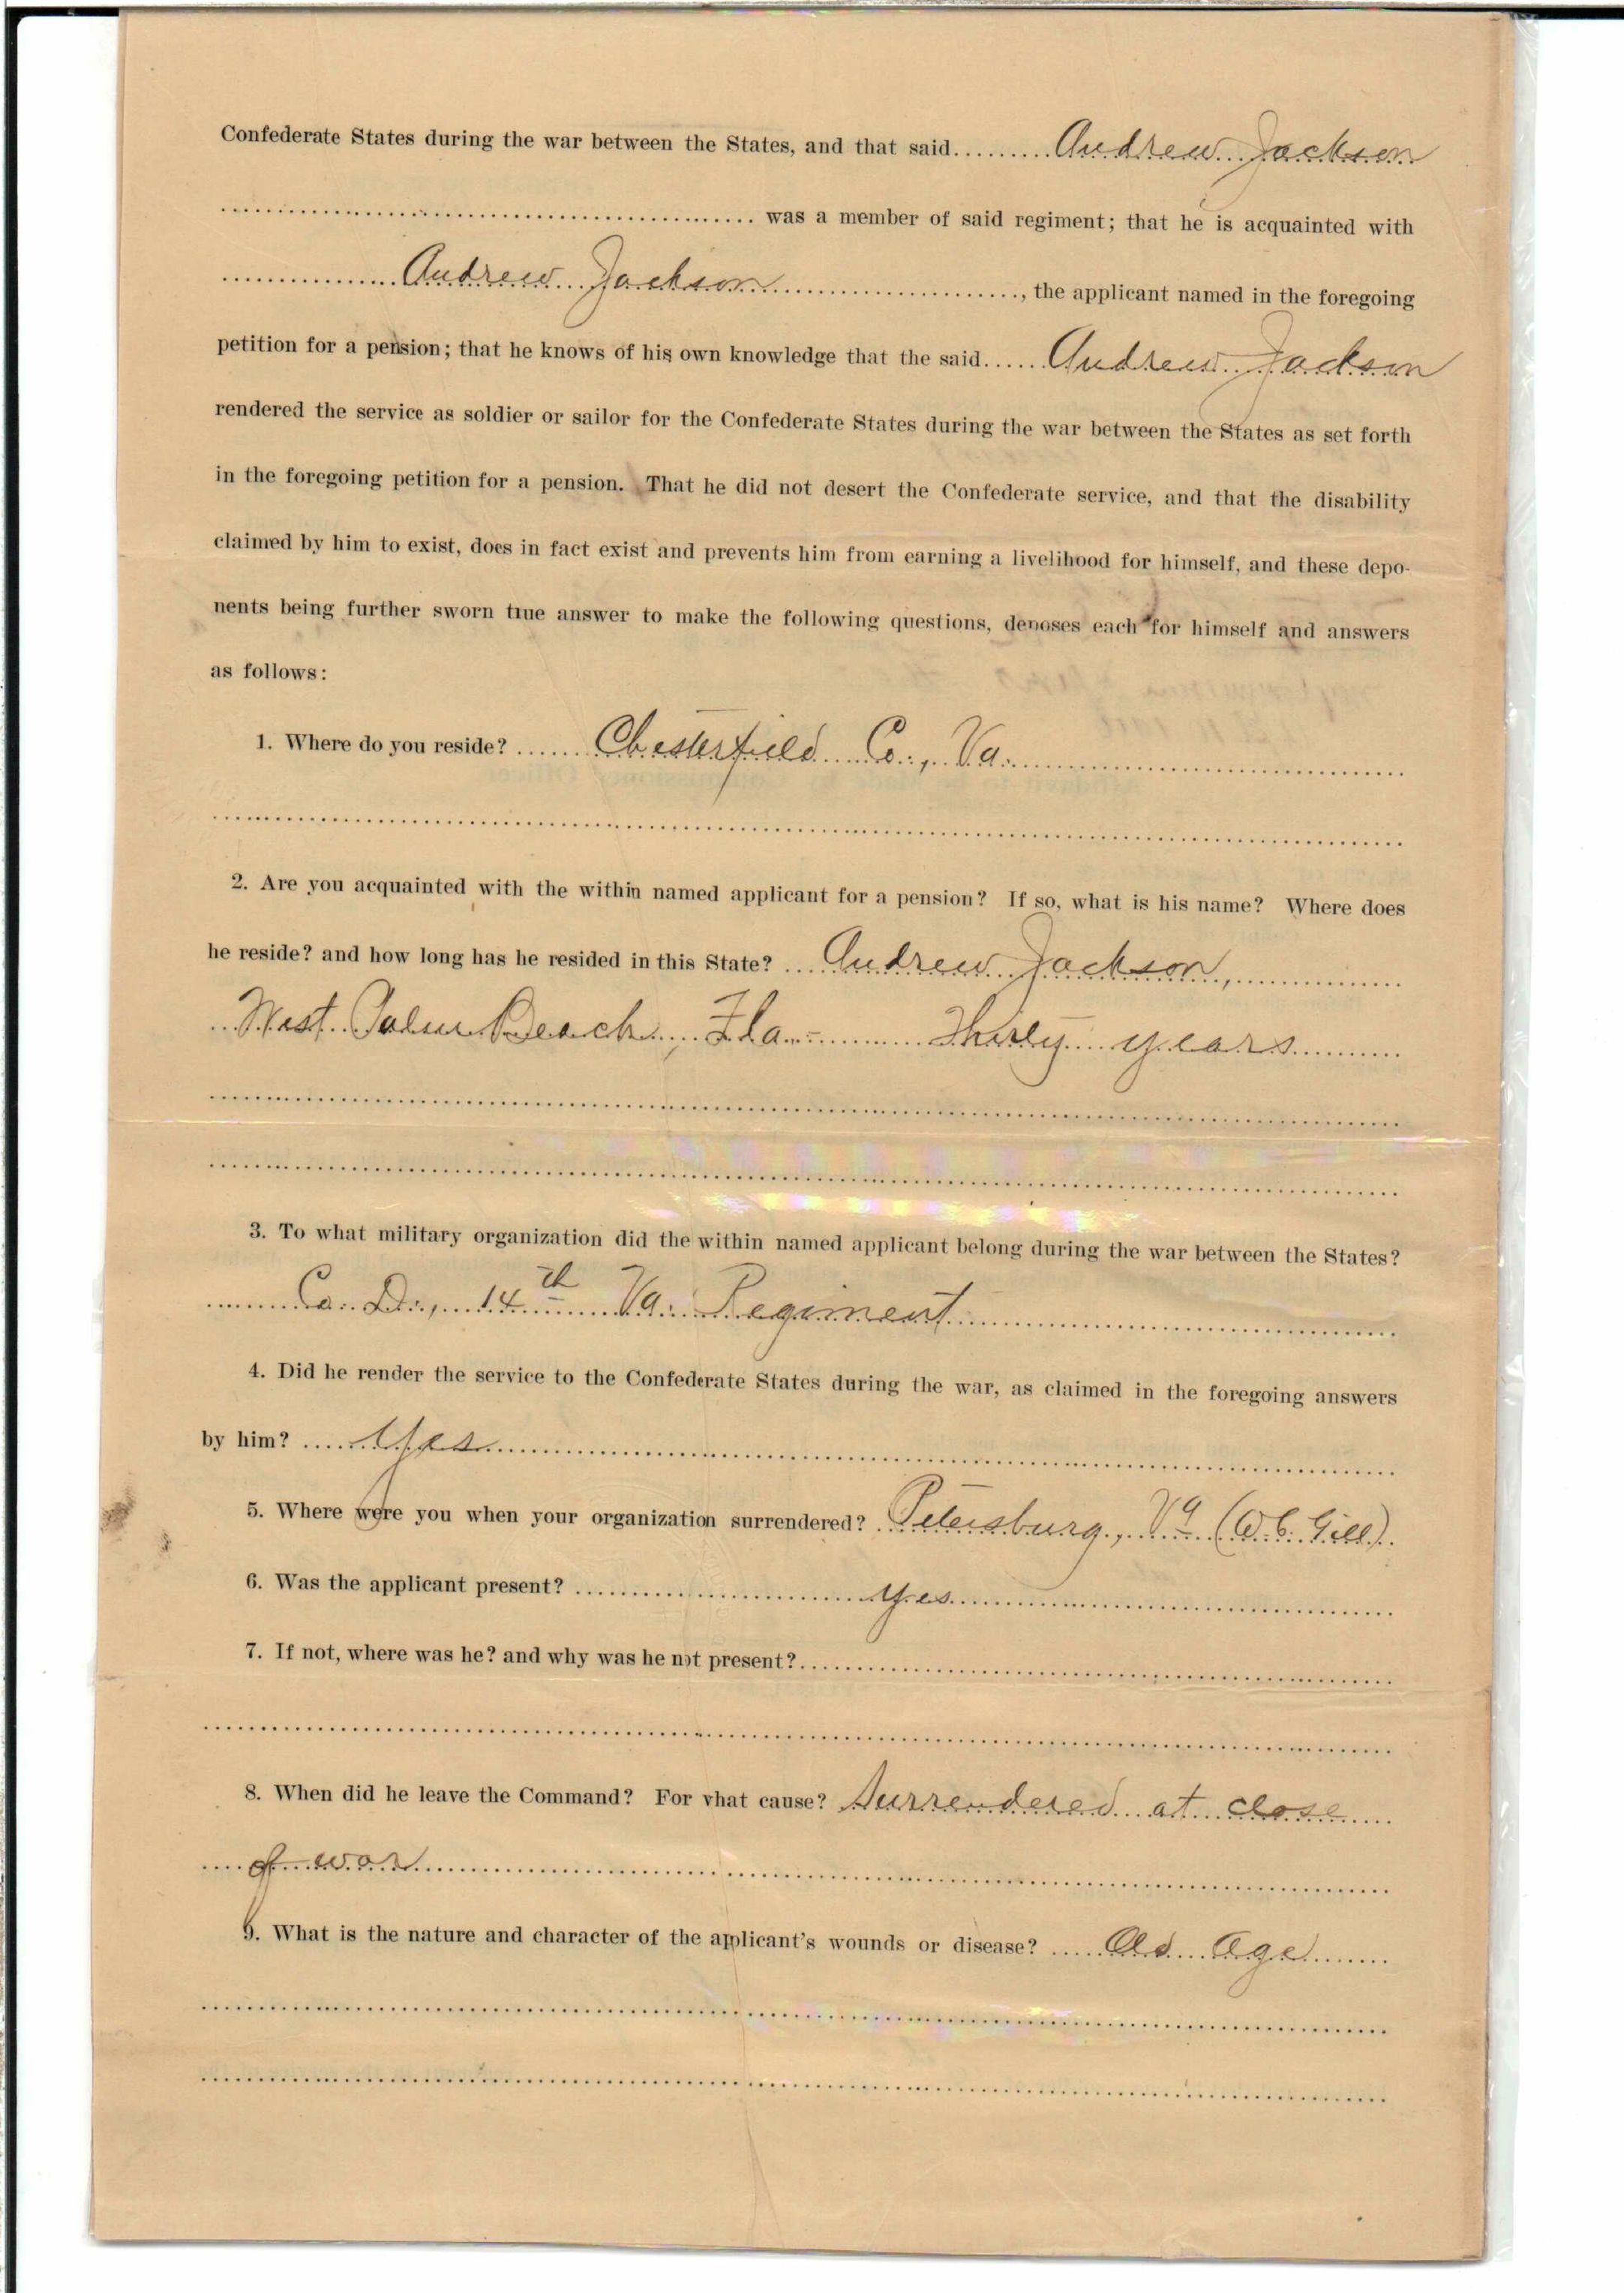 Confederate States during the war between the States, and that said Andrew Jackson
was a member of said regiment; that he is acquainted with
Andrew Jackson, the applicant named in the foregoing
petition for a pension; that he knows of his own knowledge that the said Andrew Jackson
rendered the service as soldier or sailor for the Confederate States during the war between the States as set forth
in the foregoing petition for a pension. That he did not desert the Confederate service, and that the disability
claimed by him to exist, does in fact exist and prevents him from earning a livelihood for himself, and these depo-
nents being further sworn true answer to make the following questions, deposes each for himself and answers
as follows:
1. Where do you reside? Chesterfield Co., Va.
2. Are you acquainted with the within named applicant for a pension? If so, what is his name? Where does
he reside? and how long has he resided in this State? Andrew Jackson,
West Palm Beach, Fla. - Thirty years
3. To what military organization did the within named applicant belong during the war between the States?
Co. D., 14th Va. Regiment
4. Did he render the service to the Confederate States during the war, as claimed in the foregoing answers
by him? Yes
5. Where were you when your organization surrendered? Petersburg, Va (W.C. Gill)
6. Was the applicant present? Yes
7. If not, where was he? and why was he not present?
8. When did he leave the Command? For what cause? Surrendered at close
of war
9. What is the nature and character of the applicant's wounds or disease? Old Age